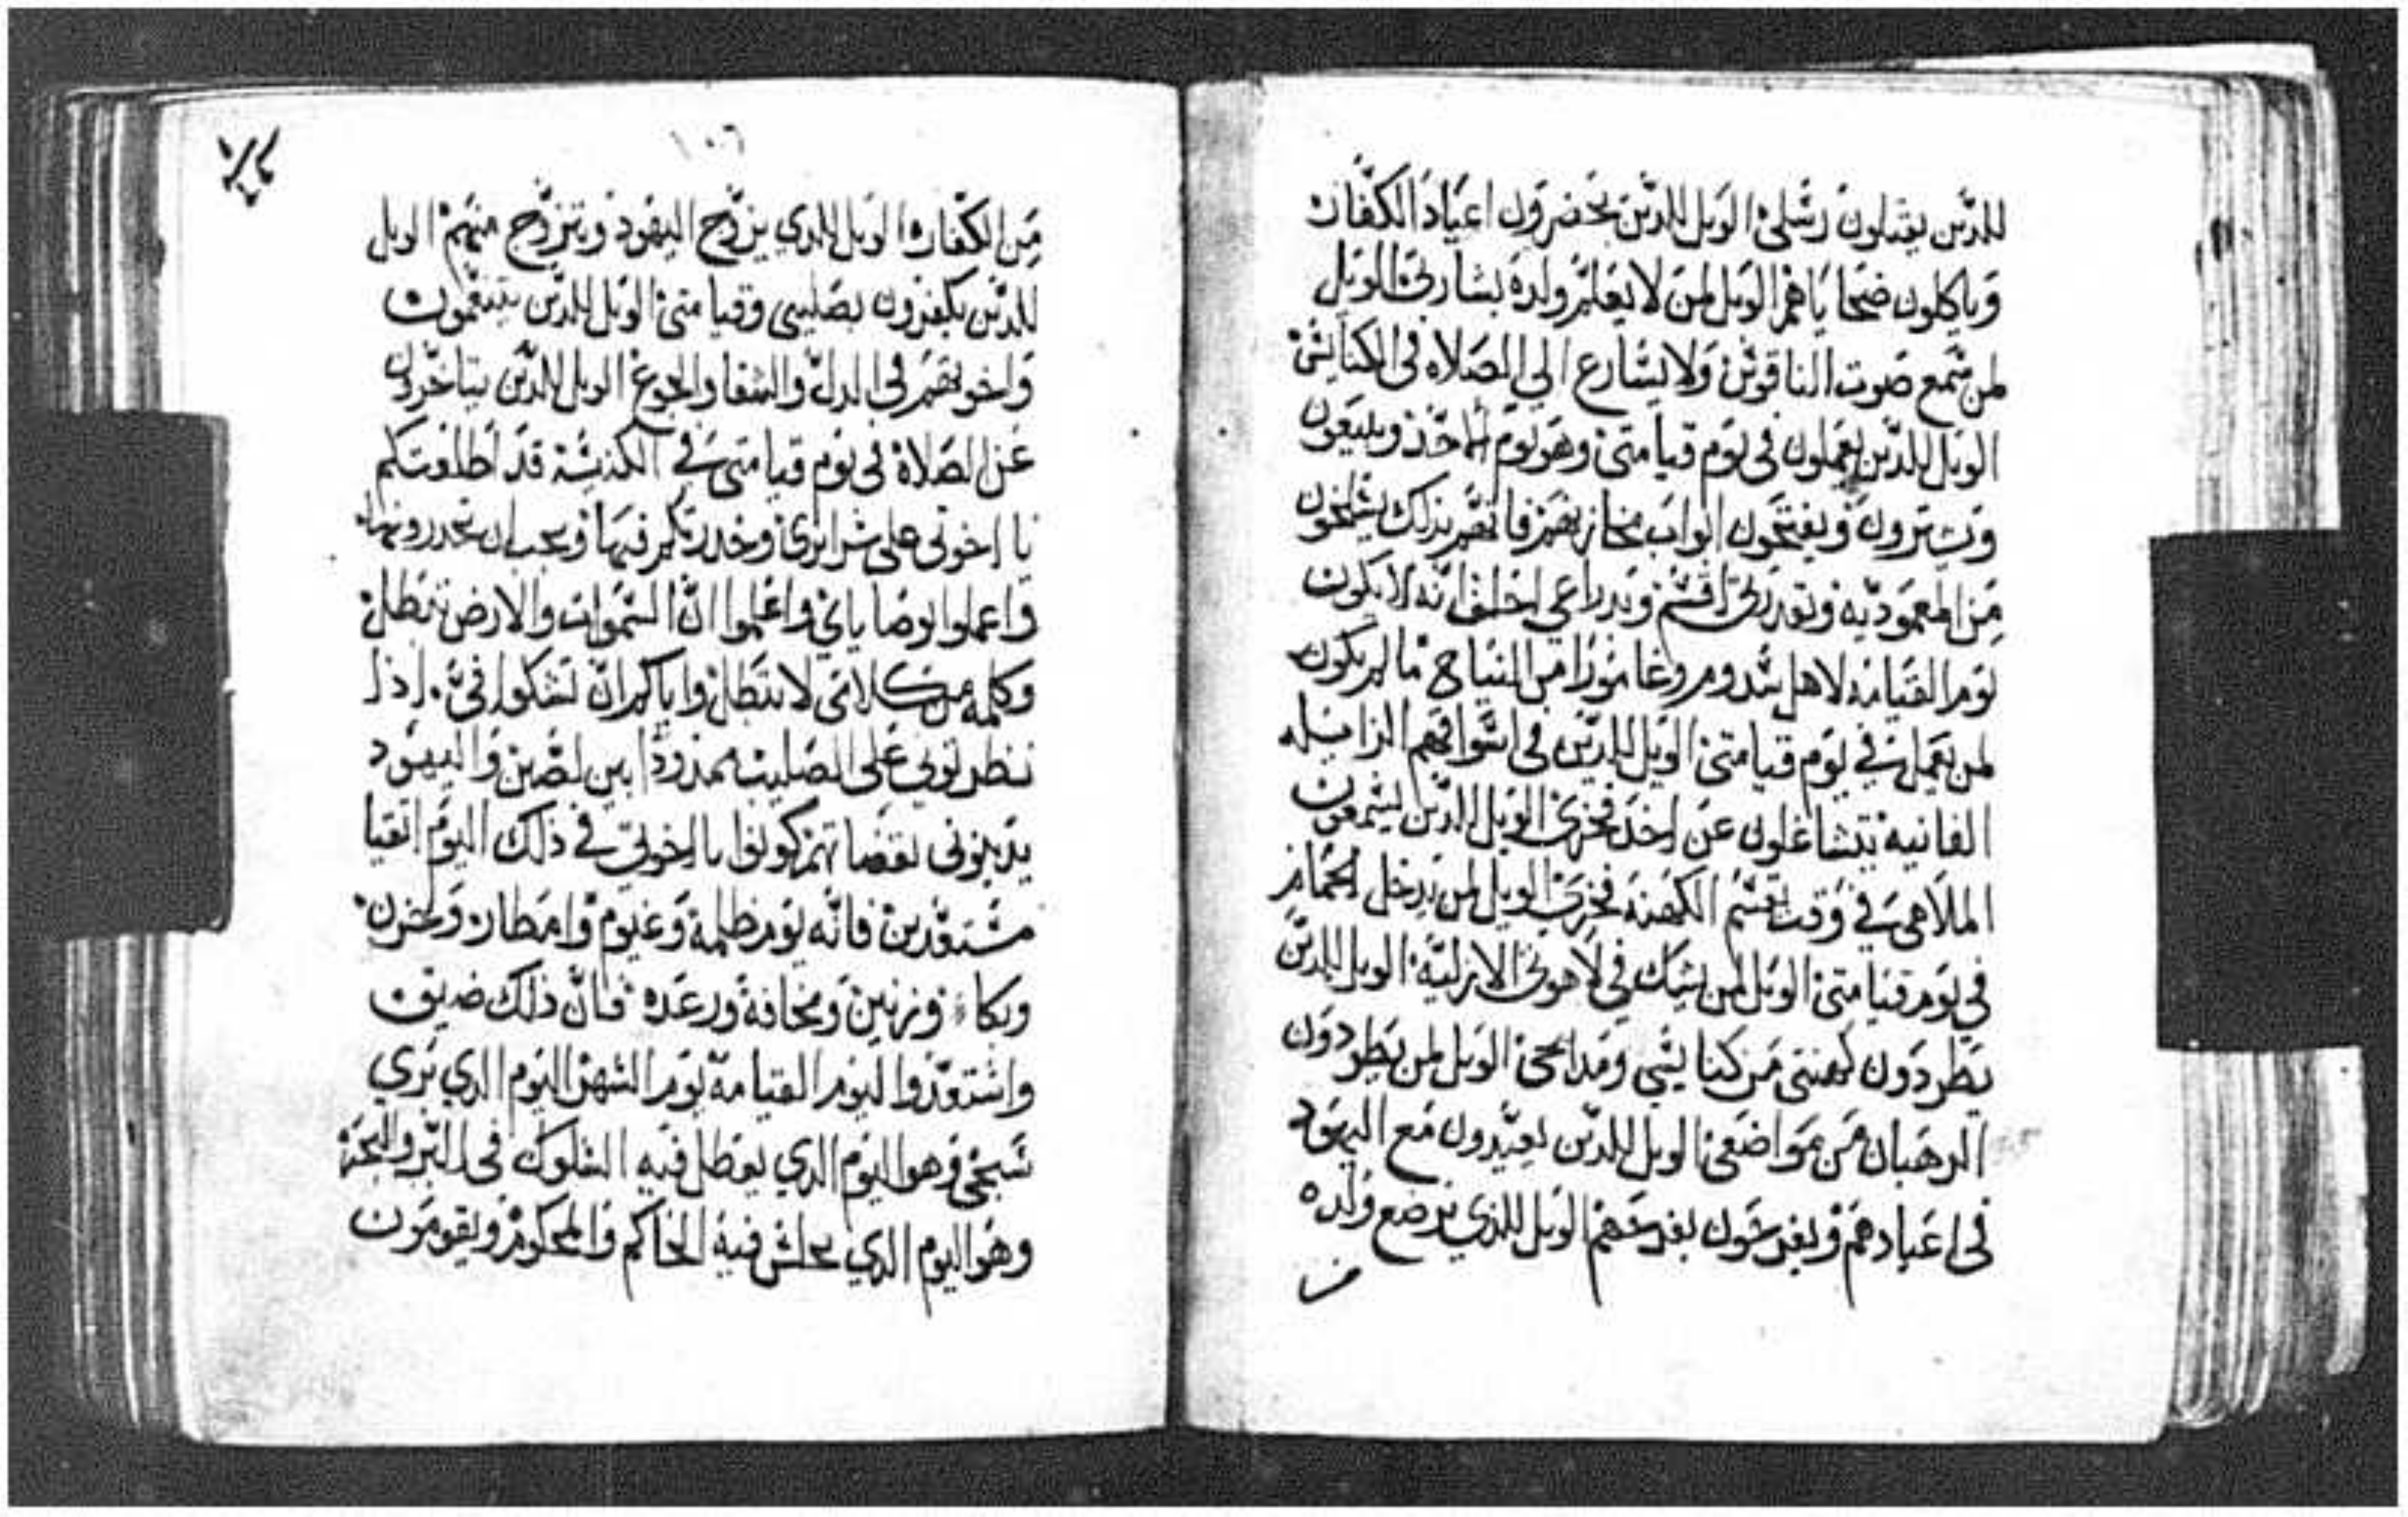 للدين يقتلون رسلي الويل للدين يحضرون اعياد الكفار
وياكلون ضحاياهم الويل لمن لا يعلم ولده بشارتي الويل
لمن سمع صوت الناقوس ولا يسارع الي الصلاه في الكنايس
الويل للدين يعملون في يوم قيامتي وهو يوم الاحد ويبيعون
ويشترون ويفتحون ابواب مخازنهم فانهم بذلك ينسلخون
من المعموديه وبقدرتي اقسم وبدراعي احلف انه لا يكون
يوم القيامه لاهل سدوم وغامورا من النياح ما لم يكون
لمن يعمل في يوم قيامتي الويل للدين في اسواقهم الزايله
الفانيه يتشاغلون عن اخد فخري الويل للدين يسمعون
الملاهي في وقت تقسم الكهنه فخري الويل لمن يدخل الحمام
في يوم قيامتي الويل لمن يشك في لاهوتي الازليه الويل للدين
يطردون كهنتي من كنايسي ومدابحي الويل لمن يطردون
الرهبان من مواضعي الويل للدين يعيدون مع اليهود
في اعيادهم ويفرحون بفرحهم الويل للذي يرضع ولده
من
١٠٦
من الكفار الويل للدي يزوج اليهود ويتزوج منهم الويل
للدين يكفرون بصليبي وقيامتي الويل للدين يتنعمون
واخوتهم في الدل والشقا والجوع الويل للدين يتاخرون
عن الصلاة في يوم قيامتي في الكنيسة قد اطلعتكم
يا اخوتي علي سرايري وحدرتكم فيها ويجب ان تحدرونها
واعملوا بوصاياي واعلموا ان السموات والارض تبطل
وكلمه من كلامي لا تبطل واياكم ان تشكوا في اذا
تنظروني على الصليب ممدودا بين لصين واليهود
يدبوني بقضاتهم كونوا يا اخوتي في ذلك اليوم اتقيا
مستعدين فانه يوم ظلمة وغيوم وامطار وحزن
وبكاء ورنين ومخافة ورعده فان ذلك ضيق
واستعدوا ليوم القيامة يوم الشهر اليوم الدي تري
تسبحي وهو اليوم الدي يعطل فيه السلوك في البر والبحر
وهو اليوم الدي يجلس فيه الحاكم والمحكوم ويقومون